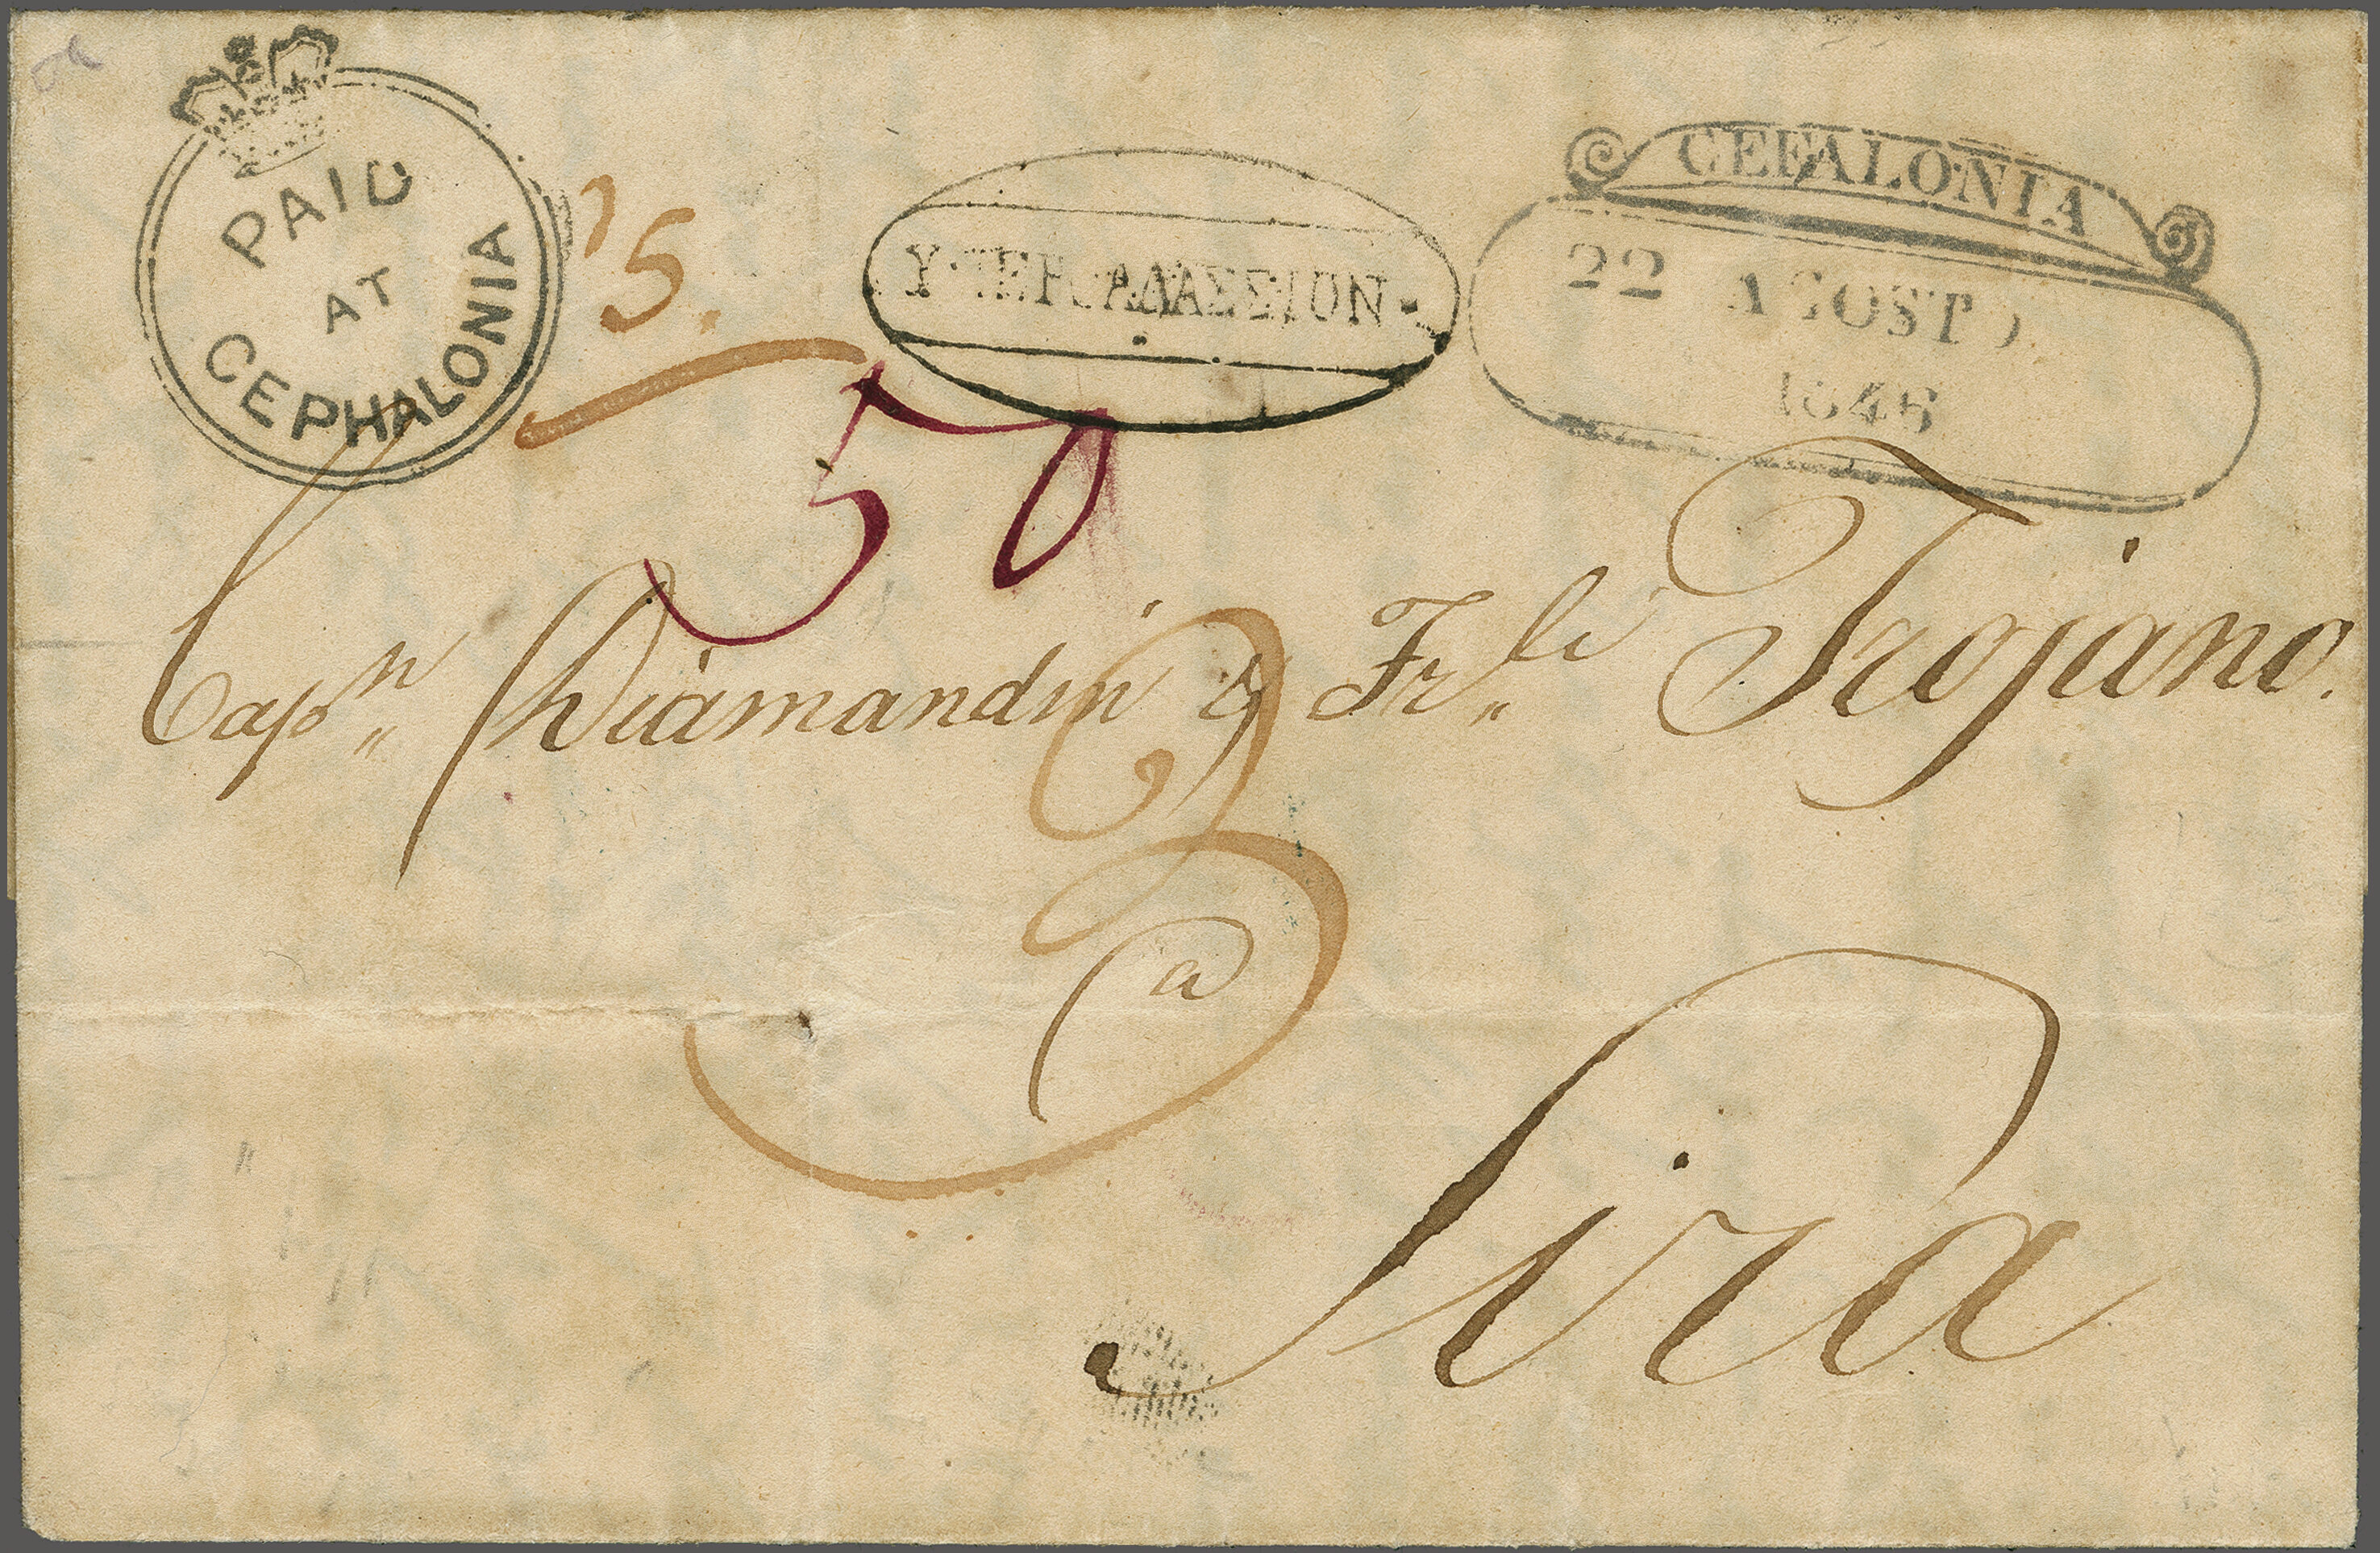 PAID
AT
CEPHALONIA
CEFALONIA
22 AGOSTO
1846
ΥΠΕΡΘΑΛΑΣΣΙΟΝ
50
Capⁿ Diamandi & Fr.lli Trojano.
3
a
Sira